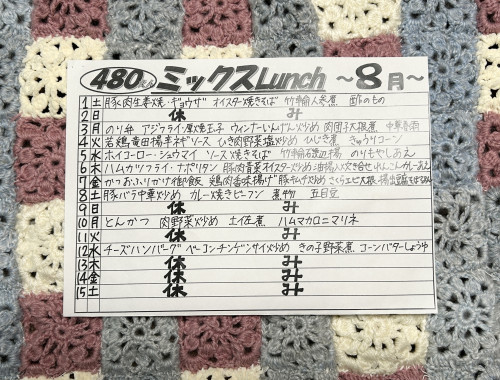 480 ミックスLunch ~8月~
1 土 豚肉生姜焼・ギョウザ オイスター焼きそば 竹輪人参煮 酢のもの
2 日 休み
3 月 のり弁 アジフライ・厚焼玉子 ウィンナーいんげん炒め 肉団子大根煮 中華春雨
4 火 若鶏竜田揚半ネギソース ひき肉野菜塩炒め ひじき煮 きゅうりコーン
5 水 ホイコーロー・シュウマイ ソース焼きそば 竹輪磯辺揚 のりもやしあえ
6 木 ハムカツフライ・ナポリタン 豚肉青菜オイスター炒め 油揚人炊き合せ れんこんカレーあえ
7 金 かつおふりかけ御飯 鶏肉香味揚げ 豚キムチ炒め さくらエビ大根
8 土 豚バラ中華炒め カレー焼きビーフン 煮物 五目豆
9 日 休み
10 月 とんかつ 肉野菜炒め 土佐煮 ハムマカロニマリネ
11 火 休み
12 水 チーズハンバーグ ベーコンチンゲンサイ炒め きのこ野菜煮 コーンバターしょうゆ
13 木 休み
14 金 休み
15 土 休み